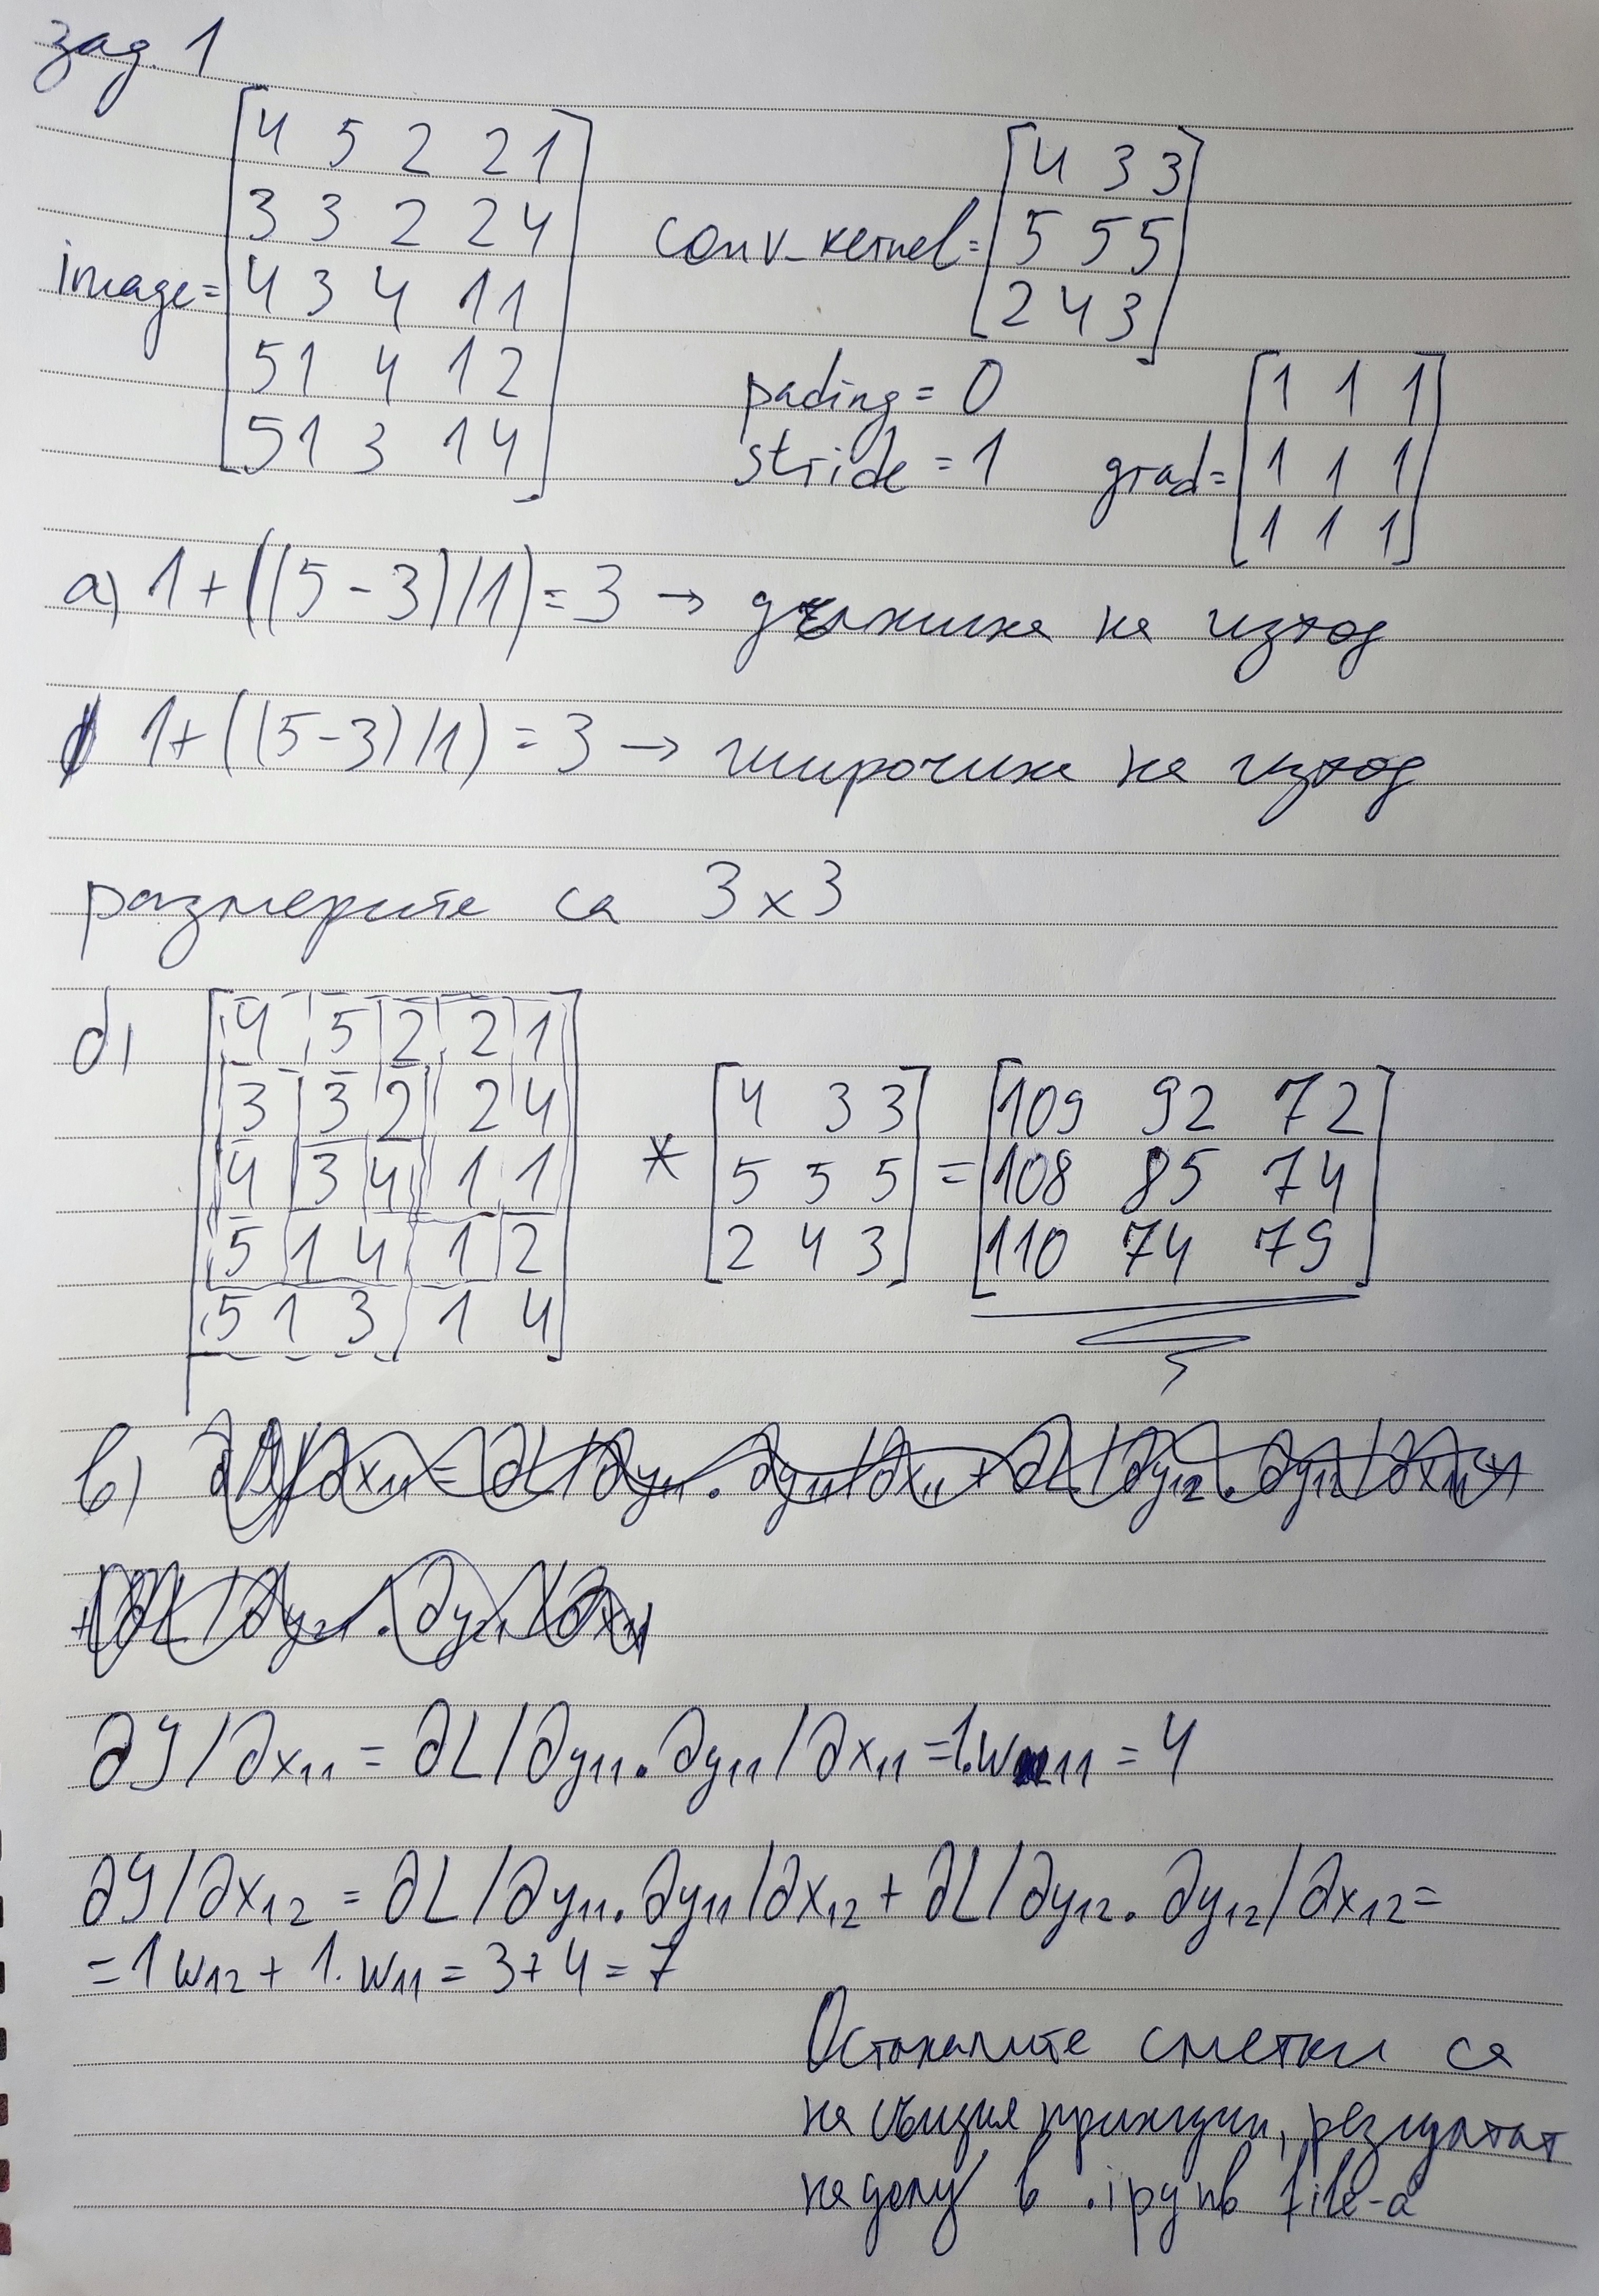 зад. 1
image = [4 5 2 2 1
3 3 2 2 4
4 3 4 1 1
5 1 4 1 2
5 1 3 1 4]
conv_kernel = [4 3 3
5 5 5
2 4 3]
pading = 0
stride = 1
grad = [1 1 1
1 1 1
1 1 1]
а) 1 + ((5 - 3) / 1) = 3 → дължина на изход
1 + ((5 - 3) / 1) = 3 → широчина на изход
размерите са 3 x 3
б) [4 5 2 2 1
3 3 2 2 4
4 3 4 1 1
5 1 4 1 2
5 1 3 1 4]
* [4 3 3
5 5 5
2 4 3]
= [109 92 72
108 85 74
110 74 79]
в)
∂y / ∂x₁₁ = ∂L / ∂y₁₁ . ∂y₁₁ / ∂x₁₁ = 1. w₁₁ = 4
∂y / ∂x₁₂ = ∂L / ∂y₁₁ . ∂y₁₁ / ∂x₁₂ + ∂L / ∂y₁₂ . ∂y₁₂ / ∂x₁₂ =
= 1 w₁₂ + 1. w₁₁ = 3 + 4 = 7
Останалите сметки са
на същия принцип, резултат
надолу в .ipynb file-а